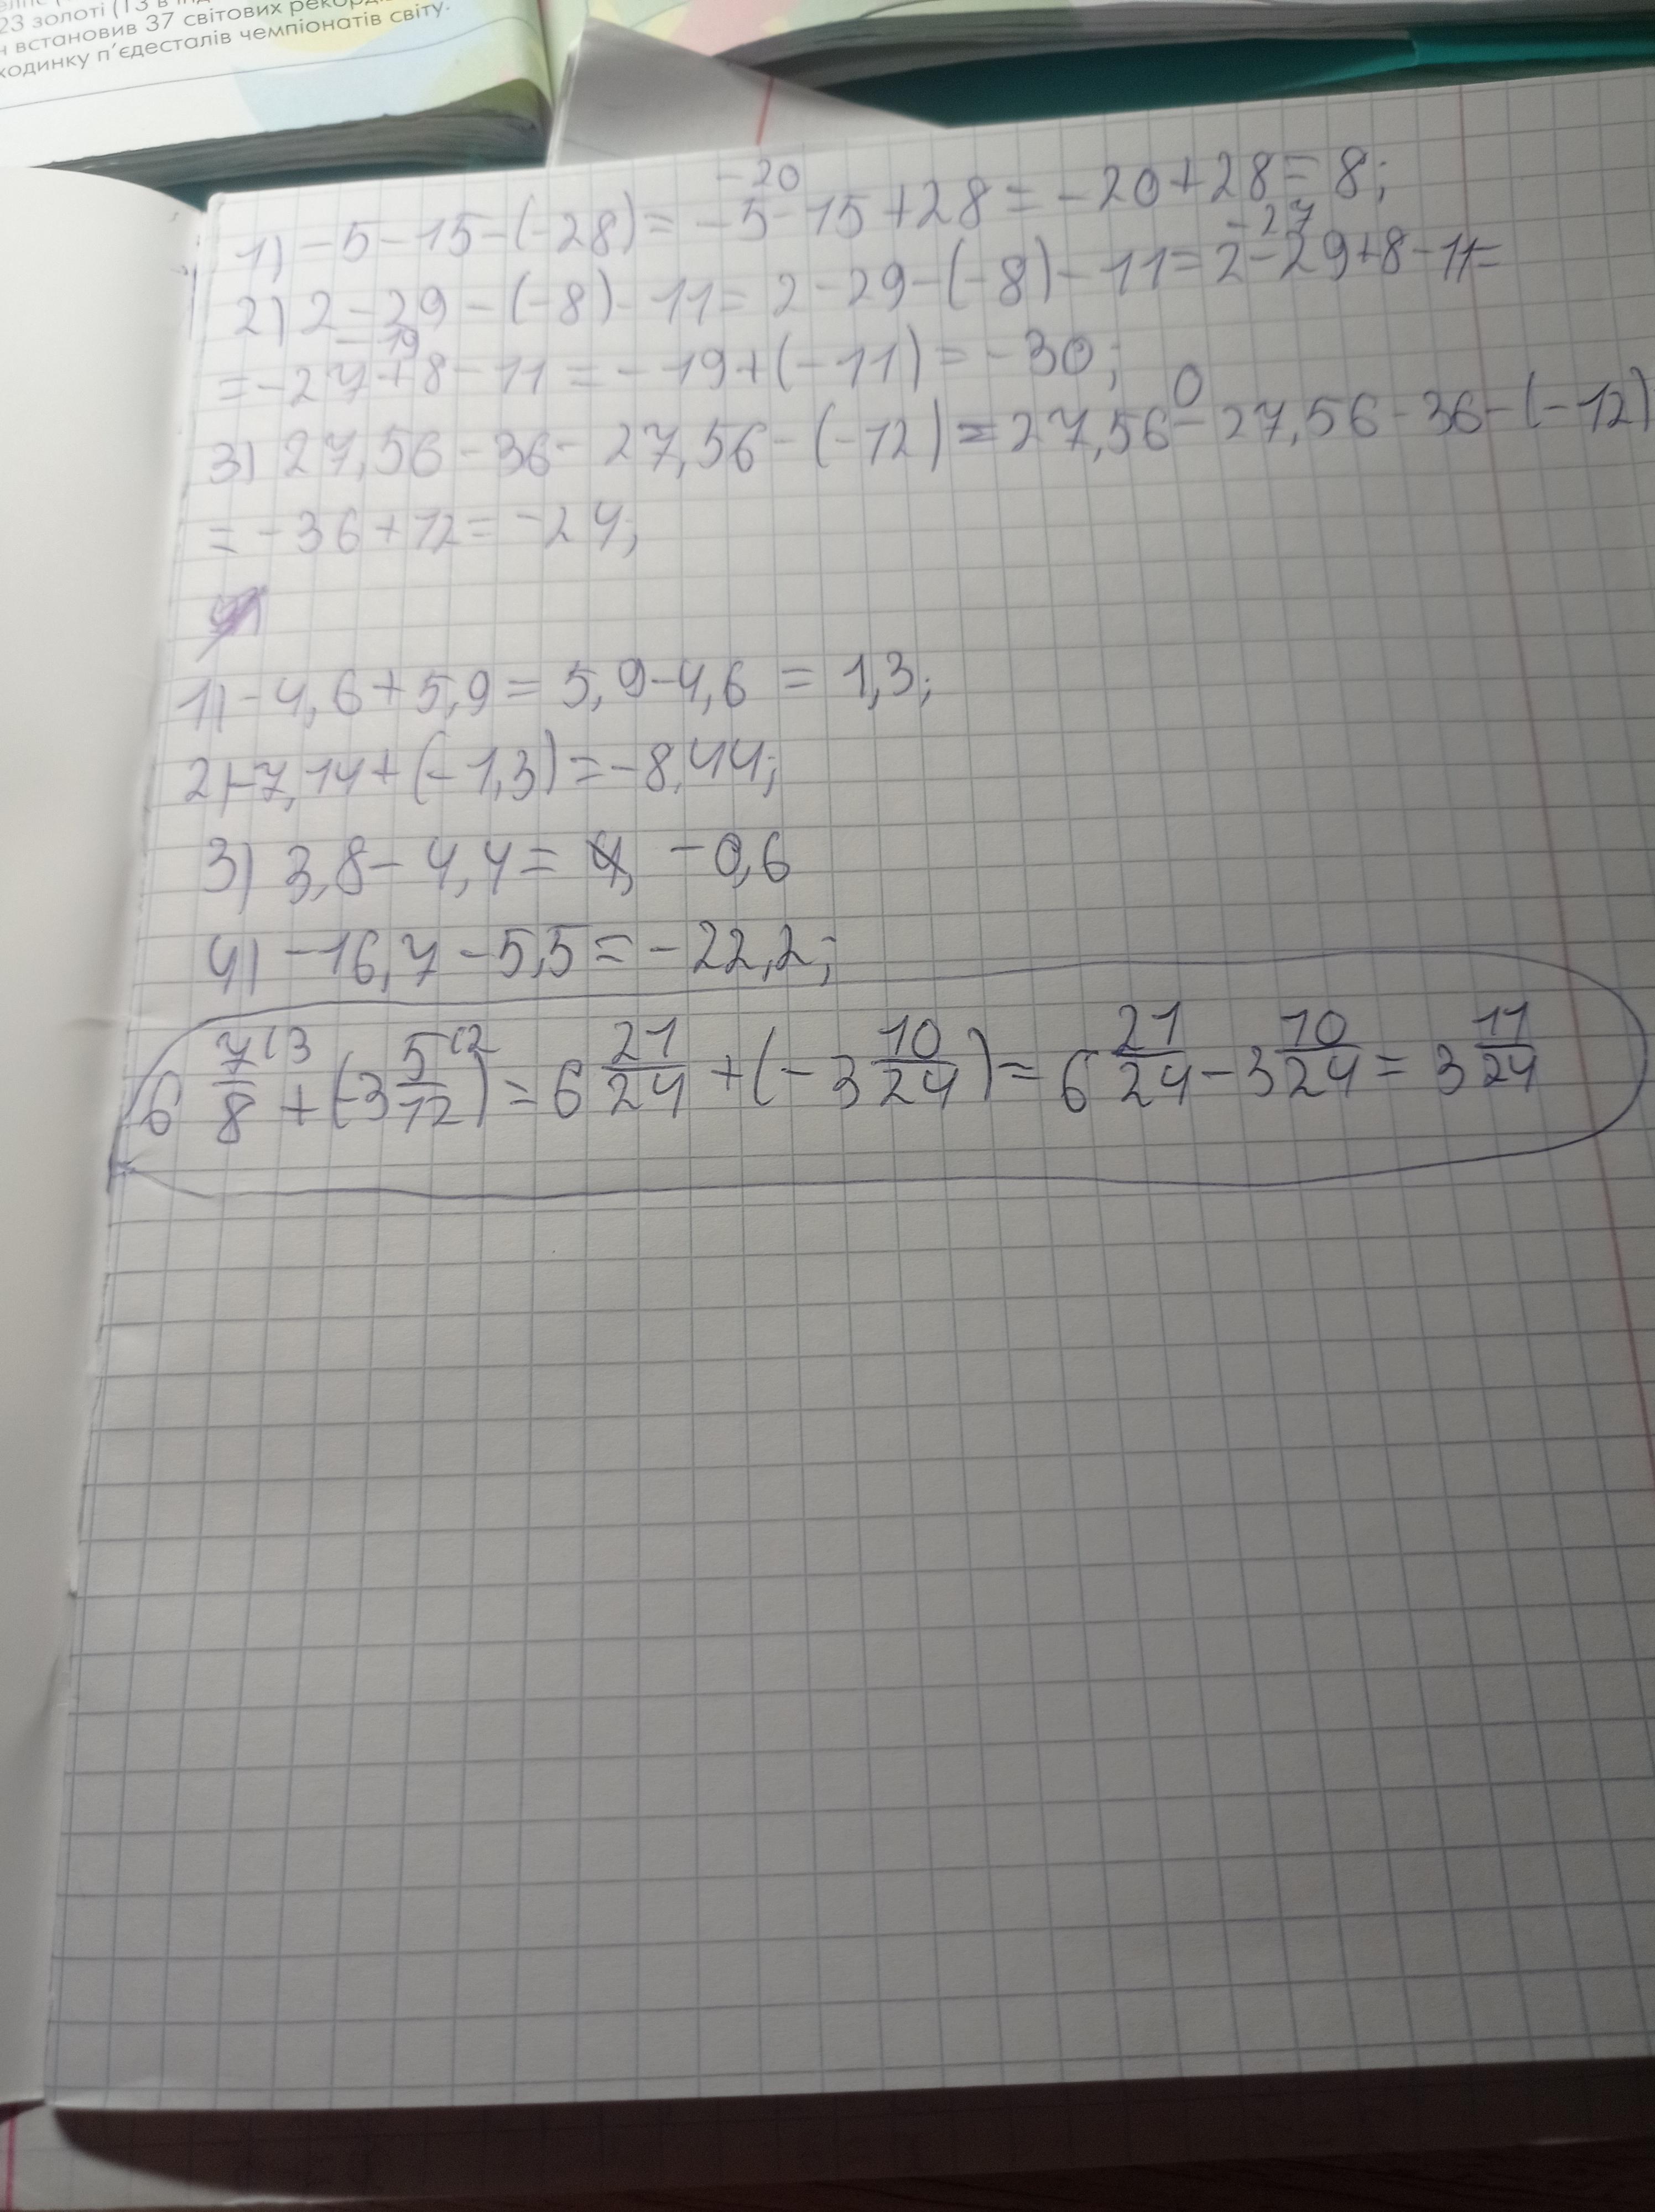 23 золоті (13 в
встановив 37 світових
п'єдесталів чемпіонатів світу.
-20
1) -5-15-(-28)= -5-15+28= -20+28= 8;
-27
2) 2-29-(-8)-11= 2-29-(-8)-11= 2-29+8-11=
-19
=-27+8-11=-19+(-11)=-30;
0
3) 27,56-36-27,56-(-12)=27,56-27,56-36-(-12)
=-36+12=-24;
1) -4,6+5,9= 5,9-4,6 = 1,3;
2) -7,14+(-1,3)=-8,44;
3) 3,8-4,4= -0,6
4) -16,7-5,5=-22,2;
6 7(3/8 + (-3 5(2/12) = 6 21/24 + (-3 10/24) = 6 21/24 - 3 10/24 = 3 11/24